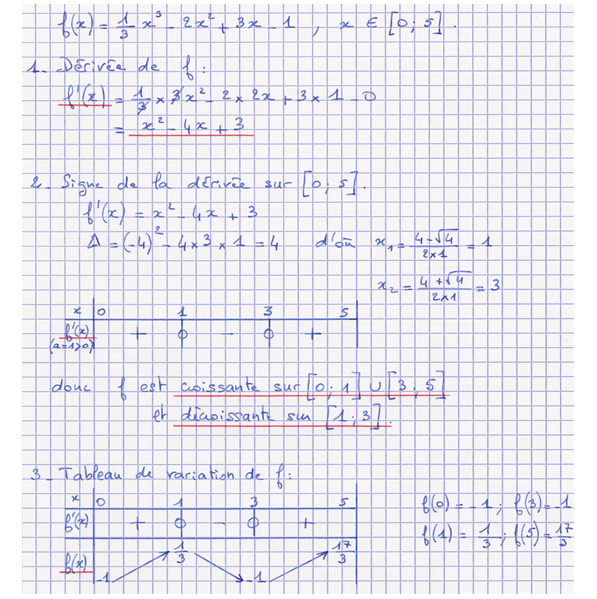 f(x) = 1/3 x³ - 2x² + 3x - 1 , x ∈ [0 ; 5].
1_ Dérivée de f :
f'(x) = 1/3 × 3x² - 2 × 2x + 3 × 1 - 0
= x² - 4x + 3
2_ Signe de la dérivée sur [0 ; 5].
f'(x) = x² - 4x + 3
Δ = (-4)² - 4×3×1 = 4 d'où x₁ = (4-√4)/(2×1) = 1
x₂ = (4+√4)/(2×1) = 3
x 0 1 3 5
f'(x) + 0 - 0 +
(a=1>0)
donc f est croissante sur [0 ; 1] ∪ [3 ; 5]
et décroissante sur [1 ; 3].
3_ Tableau de variation de f :
x 0 1 3 5
f'(x) + 0 - 0 +
f(x) -1 1/3 -1 17/3
f(0) = -1 ; f(3) = -1
f(1) = 1/3 ; f(5) = 17/3